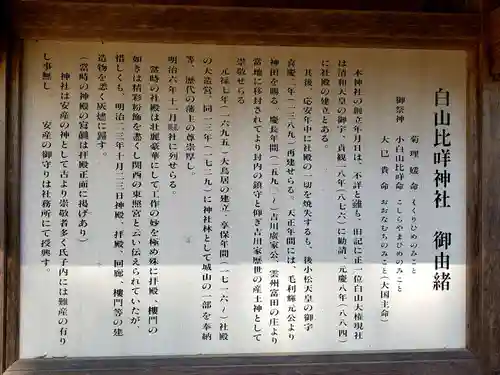 白山比咩神社　御由緒
御祭神　菊理媛命　くくりひめのみこと
小白山比咩命　こしらやまひめのみこと
大已貴命　おおなむちのみこと(大国主命)
本神社の創立年月日は、不詳と雖も、旧記に正一位白山大権現社
は清和天皇の御宇、貞観一八年(八七六)に勧請、元慶八年(八八四)
に社殿の建立とある。
其後、応安年中に社殿の一切を焼失するも、後小松天皇の御宇
喜慶二年(一三八九)再建せらる。天正年間には、毛利輝元公より
神田を賜る。慶長年間(一五九一〜)吉川廣家公、雲州富田の庄より
当地に移封されてより封内の鎮守と仰ぎ吉川家歴世の産土神として
崇敬せる
元禄七年(一六九五)大鳥居の建立、享保年間(一七一六〜)社殿
の大造営、同一三年(一七二九)に神社林として城山の一部を奉納
等、歴代の藩主の尊崇厚し。
明治六年十一月縣社に列せらる。
當時の社殿は壮麗豪華にして工作の妙を極め殊に拝殿、樓門の
如きは精彩粉飾を盡くし関西の東照宮と云い伝えられていたが、
惜しくも、明治二三年十月二三日神殿、拝殿、回廊、樓門等の建
造物を悉く灰燼に歸す。
(當時の神殿の寫眞は拝殿正面に掲げあり)
神社は安産の神として古より崇敬者多く氏子内には難産の有り
し事無し　安産の御守りは社務所にて授興す。